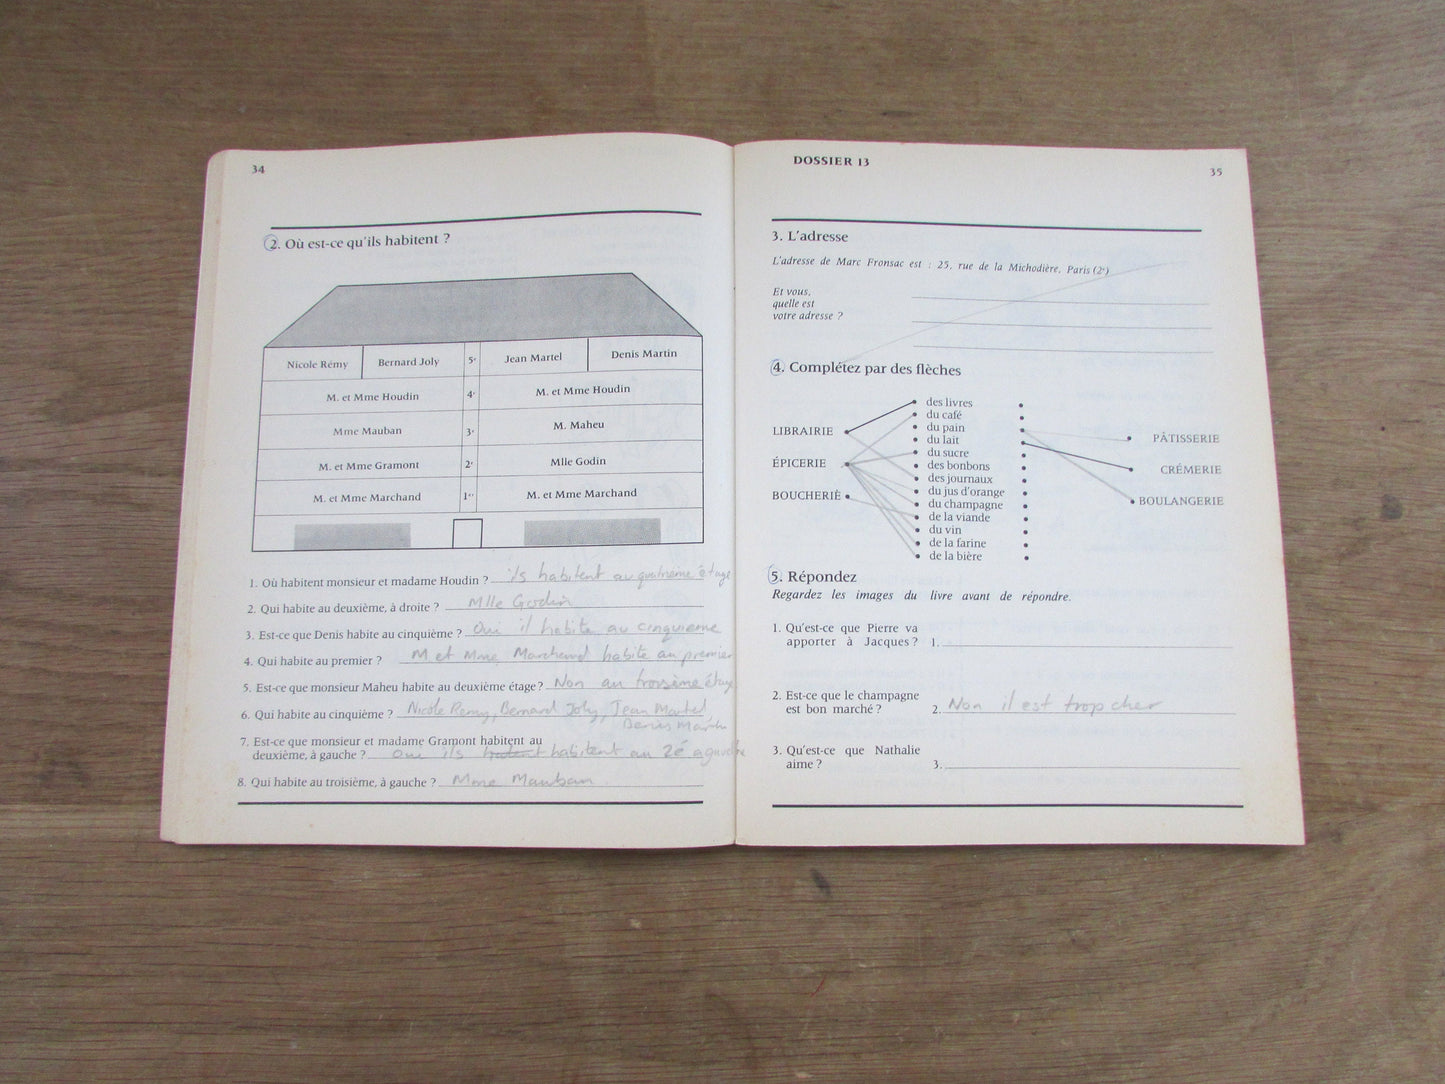 34
2. Où est-ce qu'ils habitent ?
Nicole Rémy Bernard Joly 5e Jean Martel Denis Martin
M. et Mme Houdin 4e M. et Mme Houdin
Mme Mauban 3e M. Maheu
M. et Mme Gramont 2e Mlle Godin
M. et Mme Marchand 1er M. et Mme Marchand
1. Où habitent monsieur et madame Houdin ? ils habitent au quatrième étage
2. Qui habite au deuxième, à droite ? Mlle Godin
3. Est-ce que Denis habite au cinquième ? Oui il habite au cinquieme
4. Qui habite au premier ? M et Mme Marchand habite au premier
5. Est-ce que monsieur Maheu habite au deuxième étage ? Non au troisème étage
6. Qui habite au cinquième ? Nicole Remy, Bernard Joly, Jean Martel
Denis Martin
7. Est-ce que monsieur et madame Gramont habitent au
deuxième, à gauche ? Oui ils habitent au 2é
8. Qui habite au troisième, à gauche ? Mme Mauban
DOSSIER 13
35
3. L'adresse
L'adresse de Marc Fronsac est : 25, rue de la Michodière, Paris (2e)
Et vous,
quelle est
votre adresse ?
4. Complétez par des flèches
LIBRAIRIE
ÉPICERIE
BOUCHERIE
des livres
du café
du pain
du lait
du sucre
des bonbons
des journaux
du jus d'orange
du champagne
de la viande
du vin
de la farine
de la bière
PÂTISSERIE
CRÉMERIE
BOULANGERIE
5. Répondez
Regardez les images du livre avant de répondre.
1. Qu'est-ce que Pierre va
apporter à Jacques ? 1.
2. Est-ce que le champagne
est bon marché ? 2. Non il est trop cher
3. Qu'est-ce que Nathalie
aime ? 3.